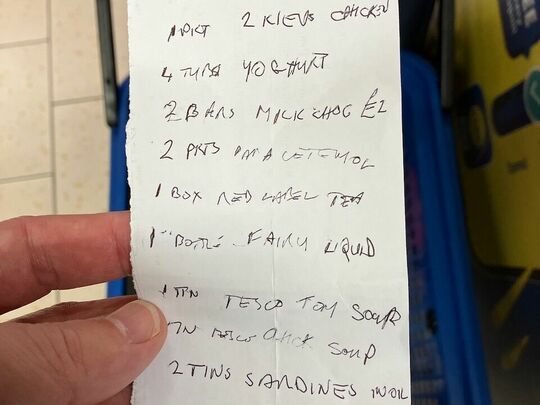 1 PKT 2 KIEVS CHICKEN
4 TUBS YOGHURT
2 BARS MILK CHOC £2
2 PKTS PARACETEMOL
1 BOX RED LABEL TEA
1 BOTTLE FAIRY LIQUID
1 TIN TESCO TOM SOUP
TIN TESCO CHICK SOUP
2 TINS SARDINES IN OIL